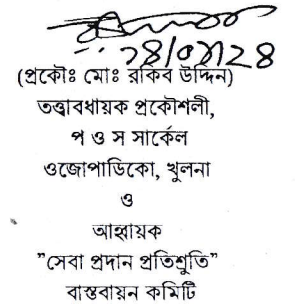 ২৪/০৭/২৪
(প্রকৌঃ মোঃ রাকিব উদ্দিন)
তত্ত্বাবধায়ক প্রকৌশলী,
প ও স সার্কেল
ওজোপাডিকো, খুলনা
ও
আহ্বায়ক
"সেবা প্রদান প্রতিশ্রুতি"
বাস্তবায়ন কমিটি